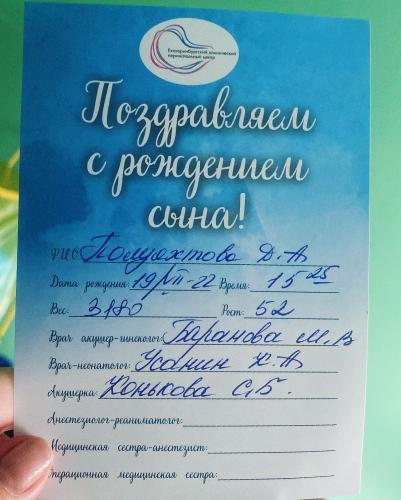 Екатеринбургский клинический
перинатальный центр
Поздравляем
с рождением
сына!
ФИО: Полуяхтова Д.А
Дата рождения: 19/VII-22 Время: 15 25
Вес: 3180 Рост: 52
Врач акушер-гинеколог: Баранова М.В
Врач-неонатолог: Усанин К.А
Акушерка: Конькова С.Б.
Анестезиолог-реаниматолог:
Медицинская сестра-анестезист:
Операционная медицинская сестра: